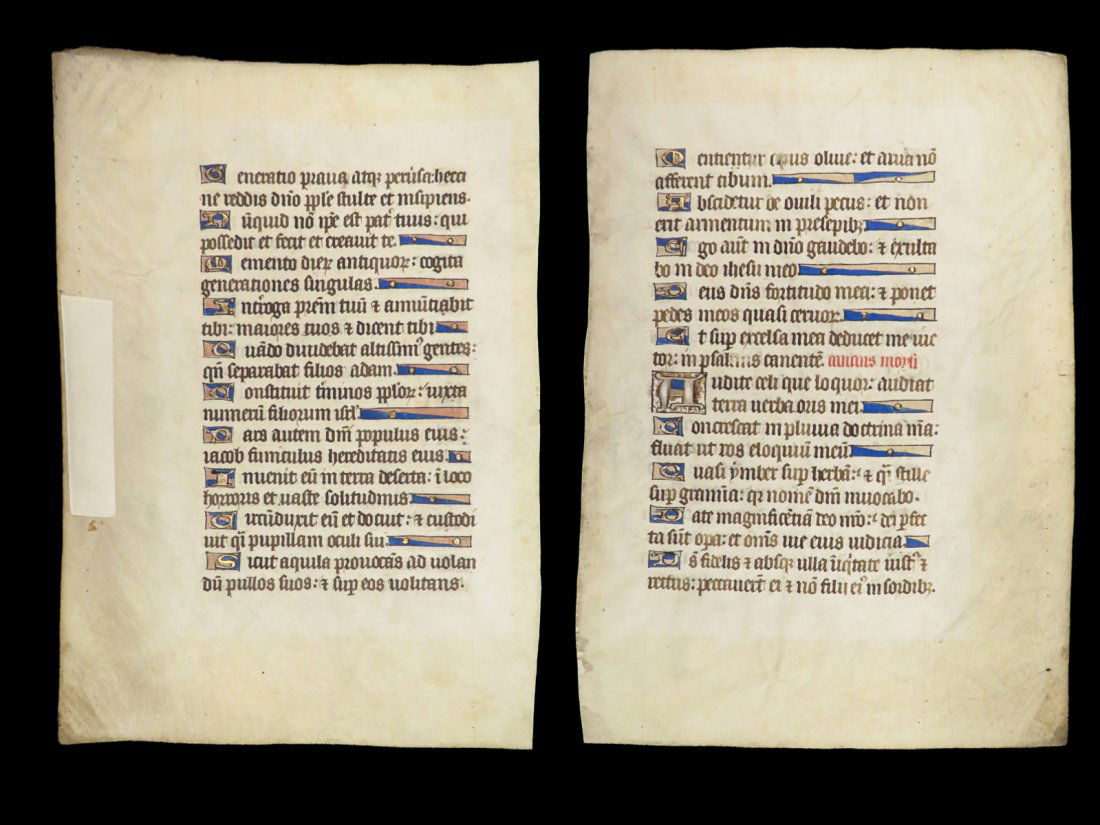 Generatio praua atq; peruͥsa: hecci
ne reddis dn̄o pple stulte et insipiens.
Nūquid nō ip̄e est pat̾ tuus: qui
possedit et fecit et creauit te.
Memento dieꝝ antiquoꝝ: cogita
generationes singulas.
Int̾roga pr̄em tuū ⁊ annūciabit
tibi: maiores tuos ⁊ dicent tibi
Quādo diuidebat altissimꝰ gentes:
qn̄ separabat filios adam.
Constituit t̾minos pploꝝ: iuxta
numerū filiorum isrl̄.
Pars autem dn̄i populus eius:
iacob funiculus hereditatis eius.
Inuenit eū in terra deserta: ī loco
horroris et uaste solitudinis.
Circūduxit eū et docuit: ⁊ custodi
uit qͥ pupillam oculi sui.
Sicut aquila prouocās ad uolan
dū pullos suos: ⁊ suꝑ eos uolitans.
Mentietur opus oliue: et arua nō
afferent cibum.
Abscidetur de ouili pecus: et non
erit armentum in presepibꝫ.
Ego aūt in dn̄o gaudebo: ⁊ exulta
bo in deo ihesu meo
Deus dn̄s fortitudo mea: ⁊ ponet
pedes meos quasi ceruoꝝ.
Et suꝑ excelsa mea deducet me uic
tor: in psalmis canentē. canticus moysi
Audite celi que loquor: audiat
terra uerba oris mei.
Concrescat in pluuia doctrina m̄a:
fluat ut ros eloquiū meū.
Quasi ymber suꝑ herbā: ⁊ qͥ stille
suꝑ gramīa: qꝛ nomē dn̄i inuocabo.
Date magnificētiam deo nr̄o: dei ꝑfec
ta sūt oꝑa: et om̄s uie eius iudicia
Ds̄ fidelis ⁊ absq; ulla īiqͥtate iustꝰ ⁊
rectus: peccauerūt ei ⁊ nō filii eiꝰ in sordibꝫ.